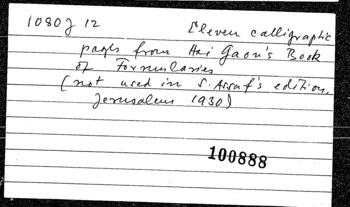 1080J 12 Eleven calligraphic
pages from Hai Gaon's Book
of Formularies
(not used in S. Assaf's edition,
Jerusalem 1930)
100888